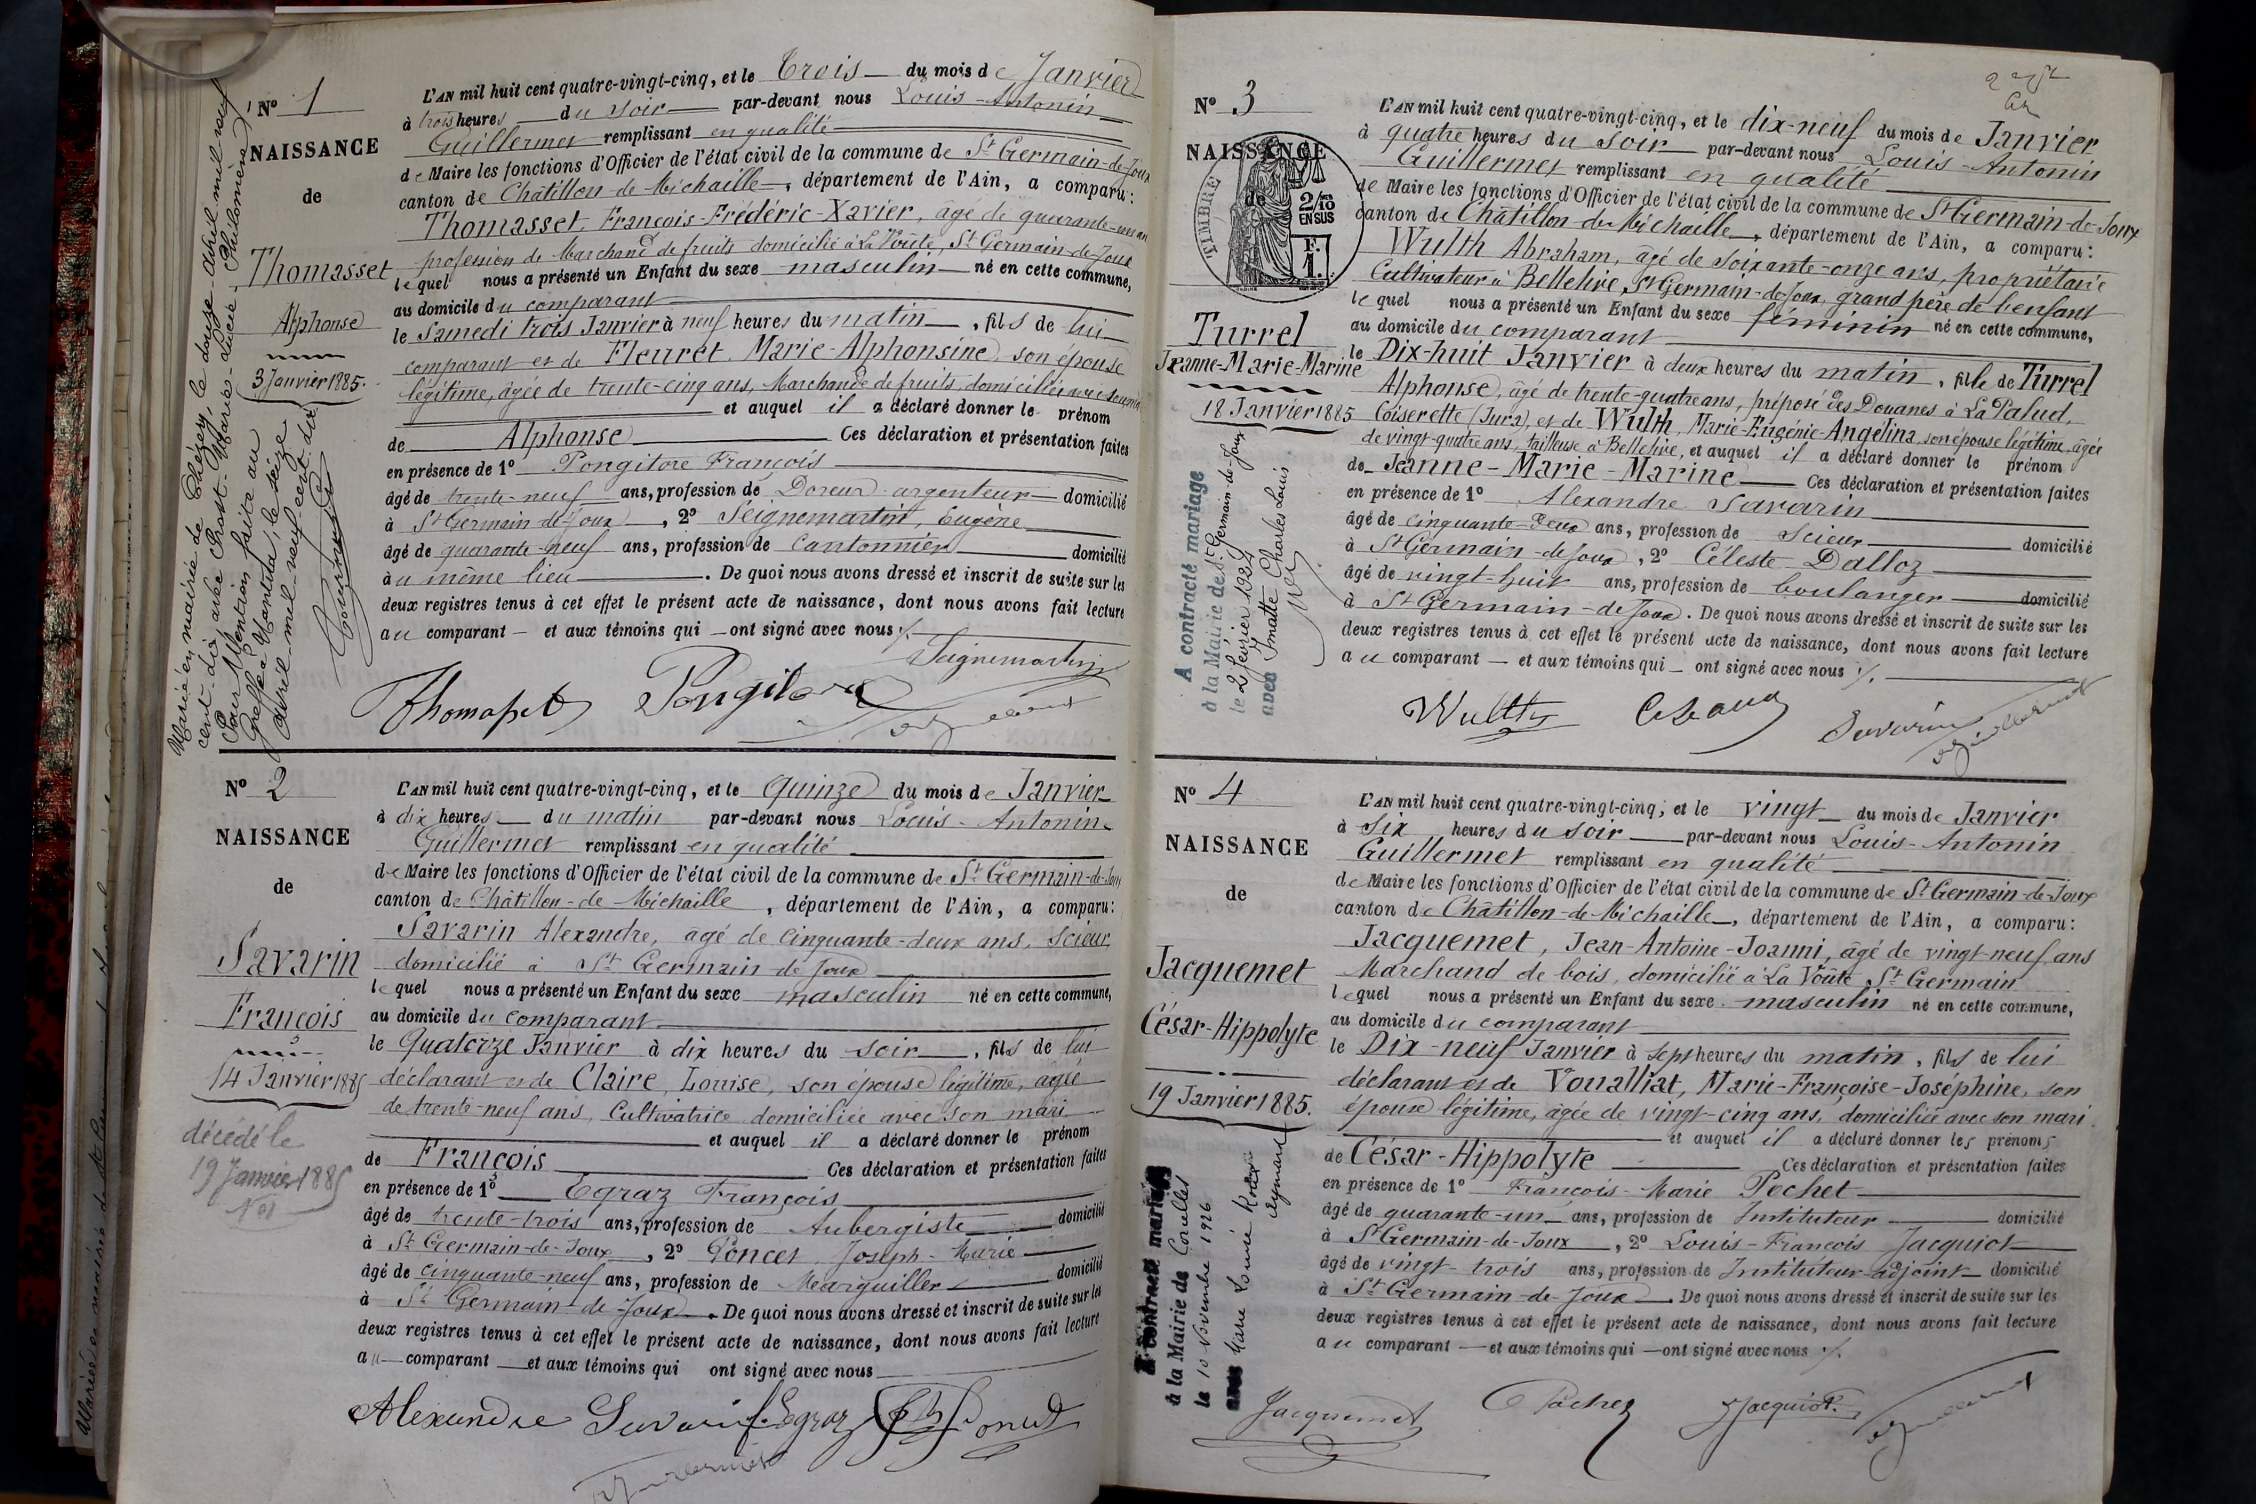 N° 1
NAISSANCE
de
Thomasset
Alphonse
3 Janvier 1885.
Marié en mairie de Chézery, le douze avril mil neuf
cent dix avec Prost - Marie - Lucie - Philomène
Pour Mention faite au
Greffe à Nantua, le seize
Avril mil neuf cent dix
L'AN mil huit cent quatre-vingt-cinq, et le Trois du mois de Janvier
à trois heures du soir par-devant nous Louis-Antonin
Guillermet remplissant en qualité
de Maire les fonctions d'Officier de l'état civil de la commune de St Germain-de-Joux
canton de Châtillon-de-Michaille, département de l'Ain, a comparu:
Thomasset François-Frédéric-Xavier, âgé de quarante-un an
profession de Marchand de fruits domicilié à La Voûte, St Germain-de-Joux
lequel nous a présenté un Enfant du sexe masculin né en cette commune,
au domicile du comparant
le Samedi trois Janvier à neuf heures du matin, fils de lui
comparant et de Fleuret Marie-Alphonsine son épouse
légitime, âgée de trente-cinq ans, Marchande de fruits, domiciliée avec son mari
et auquel il a déclaré donner le prénom
de Alphonse Ces déclaration et présentation faites
en présence de 1° Pongitore François
âgé de trente-neuf ans, profession de Doreur-argenteur domicilié
à St Germain-de-Joux, 2° Seignemartin, Eugène
âgé de quarante-neuf ans, profession de Cantonnier domicilié
au même lieu. De quoi nous avons dressé et inscrit de suite sur les
deux registres tenus à cet effet le présent acte de naissance, dont nous avons fait lecture
au comparant et aux témoins qui ont signé avec nous
Seignemartin
Thomasset Pongitore
N° 2
NAISSANCE
de
Savarin
François
14 Janvier 1885
décédé le
19 Janvier 1885
N° 1
L'AN mil huit cent quatre-vingt-cinq, et le Quinze du mois de Janvier
à dix heures du matin par-devant nous Louis-Antonin
Guillermet remplissant en qualité
de Maire les fonctions d'Officier de l'état civil de la commune de St Germain-de-Joux
canton de Châtillon-de-Michaille, département de l'Ain, a comparu:
Savarin Alexandre, âgé de cinquante-deux ans, scieur,
domicilié à St Germain de Joux
lequel nous a présenté un Enfant du sexe masculin né en cette commune,
au domicile du comparant
le Quatorze Janvier à dix heures du soir, fils de lui
déclarant et de Claire, Louise, son épouse légitime, âgée
de trente-neuf ans, Cultivatrice domiciliée avec son mari
et auquel il a déclaré donner le prénom
de François Ces déclaration et présentation faites
en présence de 1° Egraz François
âgé de trente-trois ans, profession de Aubergiste domicilié
à St Germain-de-Joux, 2° Poncet Joseph-Marie
âgé de cinquante-neuf ans, profession de Marguiller domicilié
à St Germain-de-Joux. De quoi nous avons dressé et inscrit de suite sur les
deux registres tenus à cet effet le présent acte de naissance, dont nous avons fait lecture
au comparant et aux témoins qui ont signé avec nous
Alexandre Savarin f. Egraz Poncet
Guillermet
N° 3
NAISSANCE
de
TIMBRE
2/10 EN SUS
F. 1.
Turrel
Jeanne-Marie-Marine
18 Janvier 1885
A contracté mariage
à la Mairie de St Germain-de-Joux
le 2 février 1924
avec Charles Louis
L'AN mil huit cent quatre-vingt-cinq, et le dix-neuf du mois de Janvier
à quatre heures du soir par-devant nous Louis-Antonin
Guillermet remplissant en qualité
de Maire les fonctions d'Officier de l'état civil de la commune de St Germain-de-Joux
canton de Châtillon-de-Michaille, département de l'Ain, a comparu:
Wulth Abraham, âgé de soixante-onze ans, propriétaire
Cultivateur à Bellelive, St Germain-de-Joux, grand père de l'enfant
lequel nous a présenté un Enfant du sexe féminin né en cette commune,
au domicile du comparant
le Dix-huit Janvier à deux heures du matin, fille de Turrel
Alphonse, âgé de trente-quatre ans, préposé des Douanes à La Palud,
Coiserette (Jura), et de Wulth, Marie-Eugénie-Angélina, son épouse légitime, âgée
de vingt-quatre ans, tailleuse à Bellelive, et auquel il a déclaré donner le prénom
de Jeanne-Marie-Marine Ces déclaration et présentation faites
en présence de 1° Alexandre Savarin
âgé de cinquante-deux ans, profession de scieur domicilié
à St Germain-de-Joux, 2° Céleste Dalloz
âgé de vingt-huit ans, profession de boulanger domicilié
à St Germain-de-Joux. De quoi nous avons dressé et inscrit de suite sur les
deux registres tenus à cet effet le présent acte de naissance, dont nous avons fait lecture
au comparant et aux témoins qui ont signé avec nous
Wulth Savarin
N° 4
NAISSANCE
de
Jacquemet
César-Hippolyte
19 Janvier 1885.
A contracté mariage
à la Mairie de
le 10 Novembre 1926
avec Marie
L'AN mil huit cent quatre-vingt-cinq, et le vingt du mois de Janvier
à six heures du soir par-devant nous Louis-Antonin
Guillermet remplissant en qualité
de Maire les fonctions d'Officier de l'état civil de la commune de St Germain-de-Joux
canton de Châtillon-de-Michaille, département de l'Ain, a comparu:
Jacquemet, Jean-Antoine-Joanni, âgé de vingt-neuf ans
Marchand de bois, domicilié à La Voûte St Germain
lequel nous a présenté un Enfant du sexe masculin né en cette commune,
au domicile du comparant
le Dix-neuf Janvier à sept heures du matin, fils de lui
déclarant et de Voualliat, Marie-Françoise-Joséphine, son
épouse légitime, âgée de vingt-cinq ans, domiciliée avec son mari
et auquel il a déclaré donner les prénoms
de César-Hippolyte Ces déclaration et présentation faites
en présence de 1° François-Marie Pochet
âgé de quarante-un ans, profession de Instituteur domicilié
à St Germain-de-Joux, 2° Louis-François Jacquiot
âgé de vingt-trois ans, profession de Instituteur-adjoint domicilié
à St Germain-de-Joux. De quoi nous avons dressé et inscrit de suite sur les
deux registres tenus à cet effet le présent acte de naissance, dont nous avons fait lecture
au comparant et aux témoins qui ont signé avec nous
Jacquemet Pochet Jacquiot